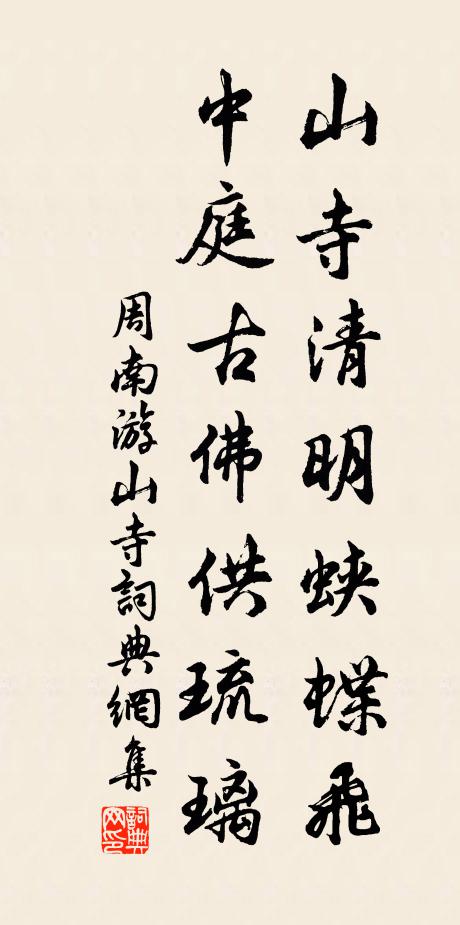 山寺清明蛺蝶飛
中庭古佛供琉璃
周南游山寺詞典網集
詞典網印